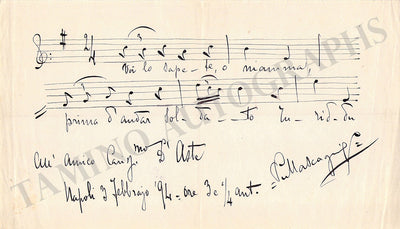 2/4
3
Voi lo sapete, o mamma,
prima d'andar solda-to Tu-rid-du
All' Amico Cariss.mo Aste
Napoli 3 Febbrajo '94 - ore 3 e 1/4 ant.
P. Mascagni
TAMINO AUTOGRAPHS